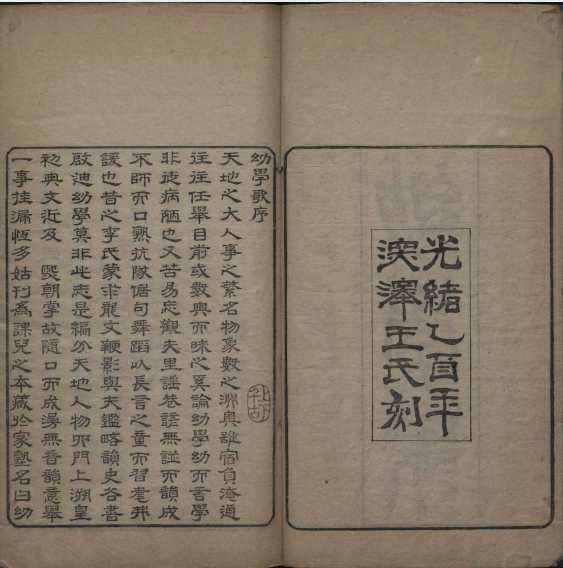 光緒乙酉年
深澤王氏刻
幼學歌序
天地之大人事之繁名物象數之淵奧雖宿負淹通
往往任舉目前或數典而昧之奚論幼學幼而言學
非徒病陋也又苦易忘觀夫里謠巷諺無而韻成
不師而口熟抗隊倨句舞蹈以長言之童而習耄弗
諼也昔之李氏蒙求龍文鞭影與夫鑑略韻史各書
啟迪幼學莫非此志是編分天地人物門上溯皇
初典文近及 熙朝掌故隨口而成漫無音韻意舉
一事挂漏恆多姑刊爲課兒之本藏於家塾名曰幼